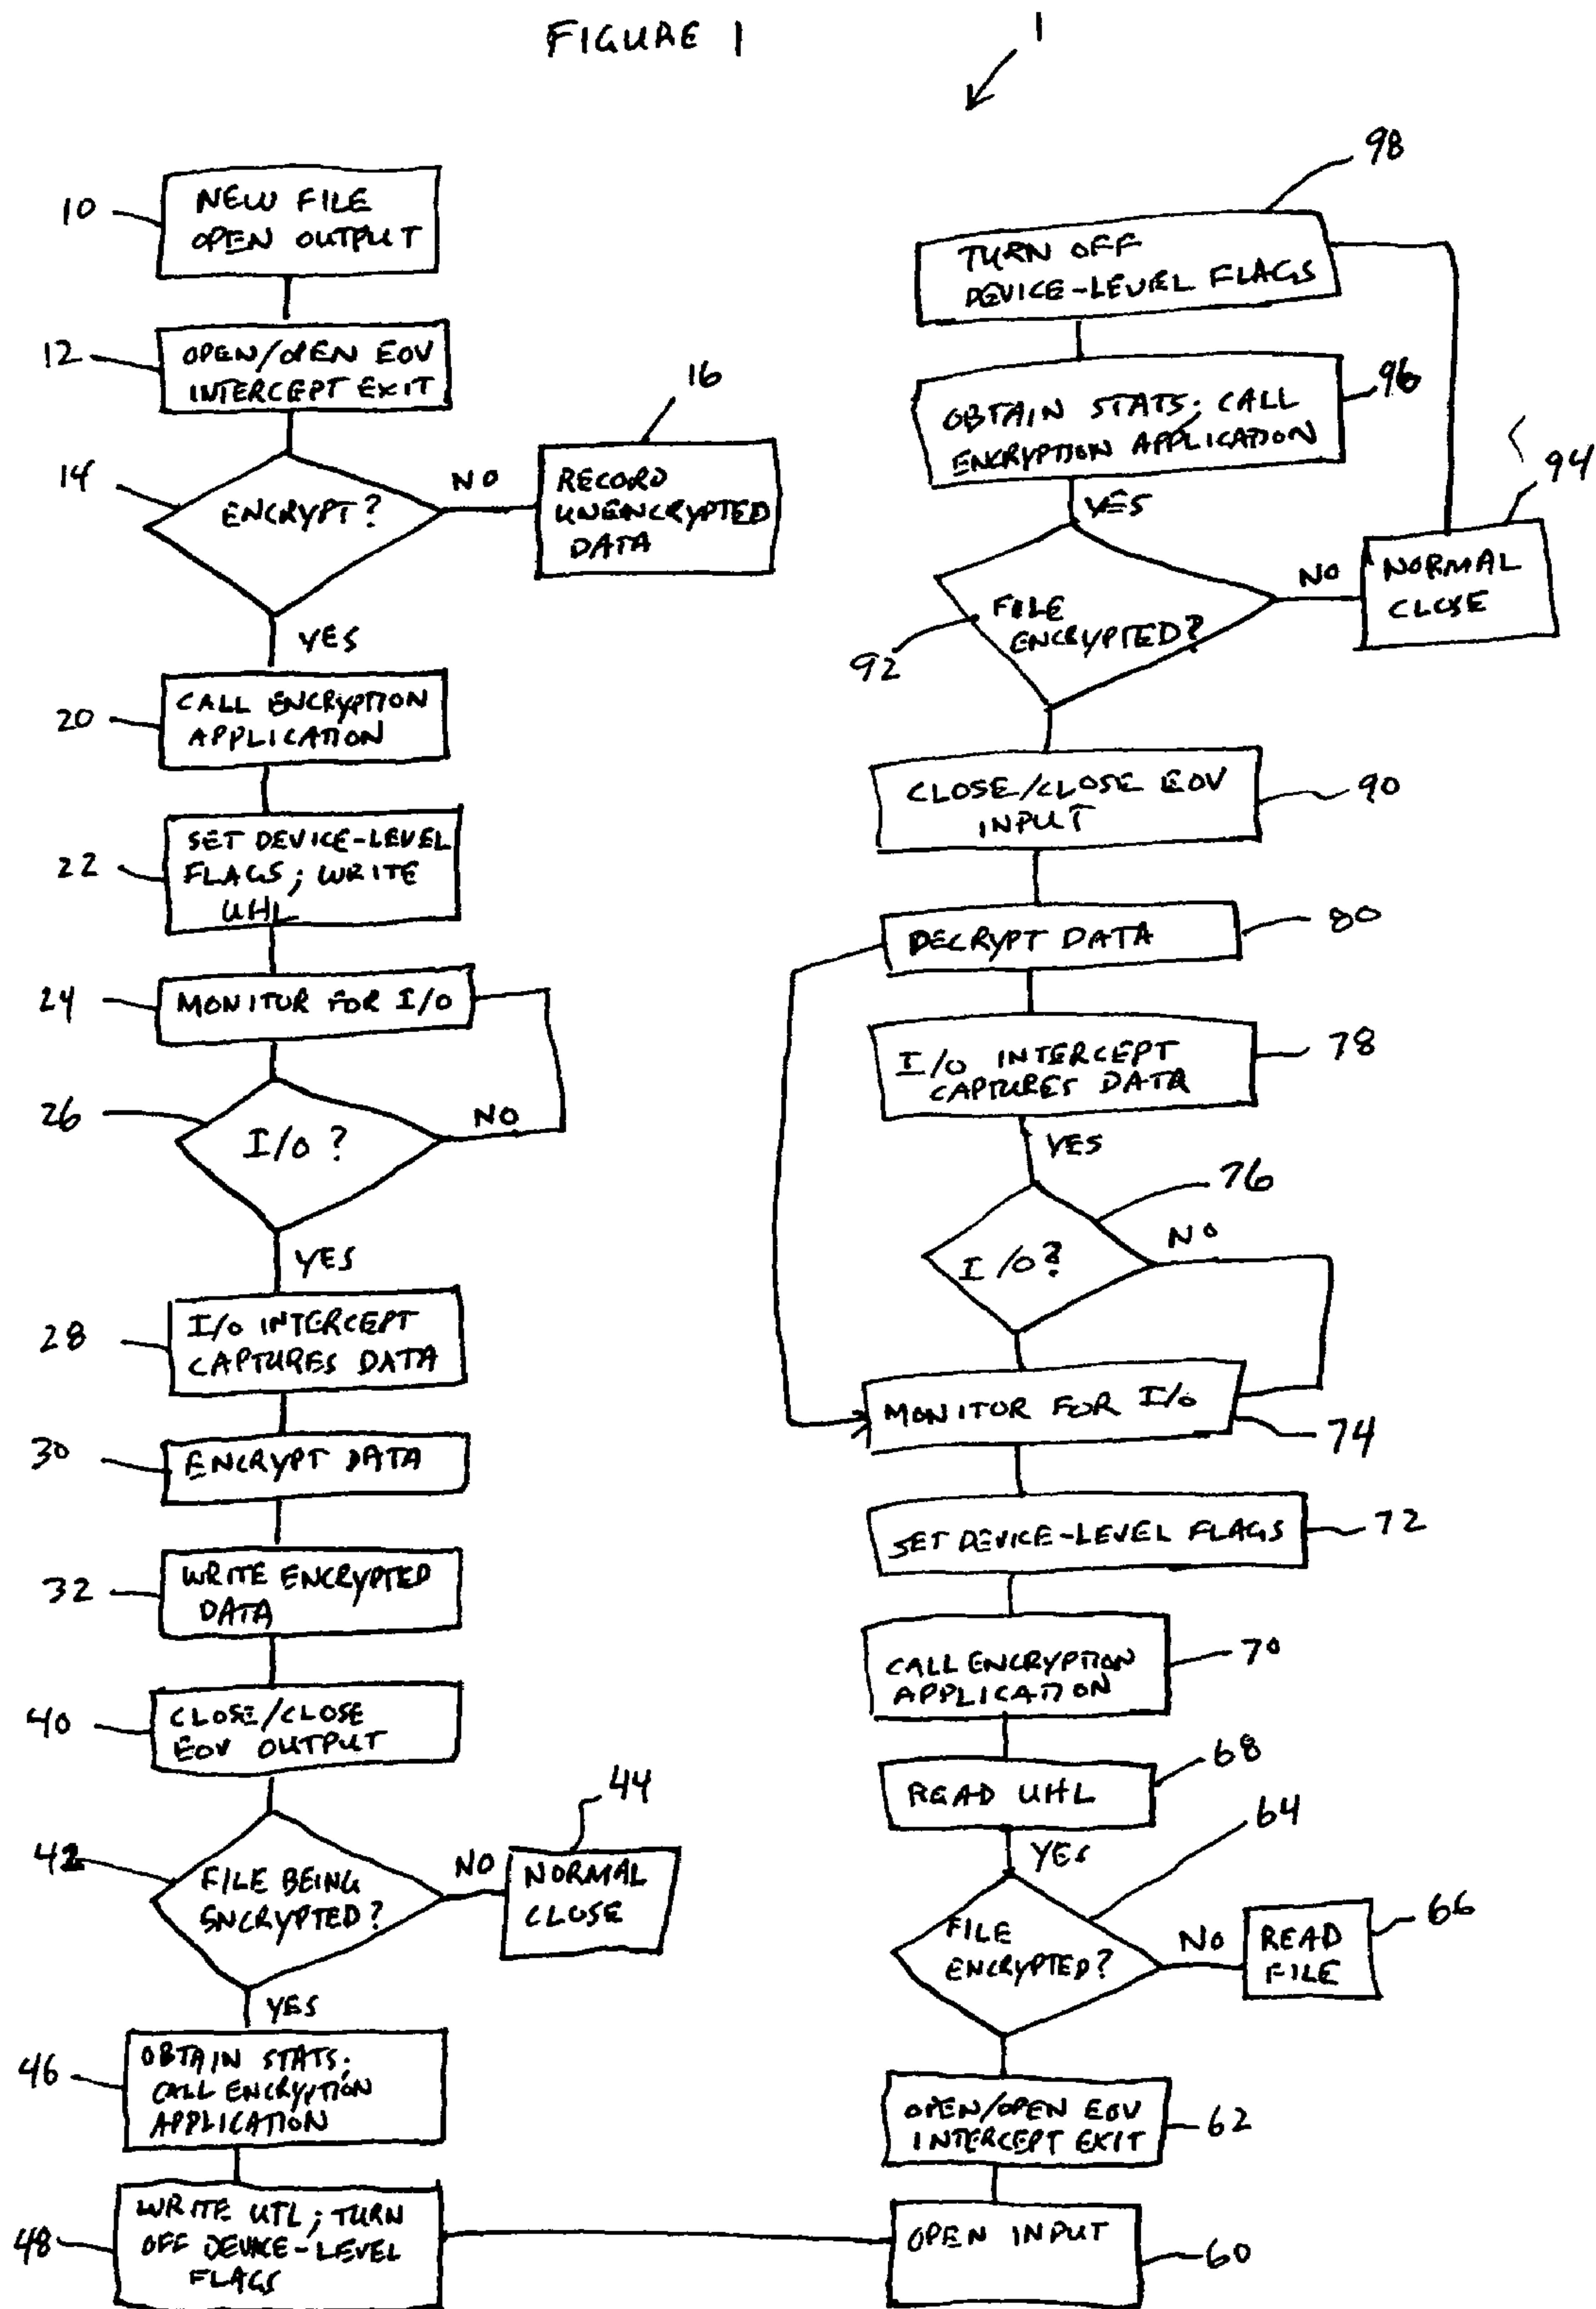 FIGURE 1
1
10
NEW FILE
OPEN OUTPUT
12
OPEN/OPEN EOV
INTERCEPT EXIT
14
ENCRYPT?
NO
16
RECORD
UNENCRYPTED
DATA
YES
20
CALL ENCRYPTION
APPLICATION
22
SET DEVICE-LEVEL
FLAGS; WRITE
UHL
24
MONITOR FOR I/O
26
I/O?
NO
YES
28
I/O INTERCEPT
CAPTURES DATA
30
ENCRYPT DATA
32
WRITE ENCRYPTED
DATA
40
CLOSE/CLOSE
EOV OUTPUT
42
FILE BEING
ENCRYPTED?
NO
44
NORMAL
CLOSE
YES
46
OBTAIN STATS;
CALL ENCRYPTION
APPLICATION
48
WRITE UTL; TURN
OFF DEVICE-LEVEL
FLAGS
98
TURN OFF
DEVICE-LEVEL FLAGS
96
OBTAIN STATS; CALL
ENCRYPTION APPLICATION
94
YES
NO
NORMAL
CLOSE
FILE
ENCRYPTED?
92
CLOSE/CLOSE EOV
INPUT
90
DECRYPT DATA
80
I/O INTERCEPT
CAPTURES DATA
78
YES
76
NO
I/O?
MONITOR FOR I/O
74
SET DEVICE-LEVEL FLAGS
72
CALL ENCRYPTION
APPLICATION
70
READ UHL
68
YES
64
FILE
ENCRYPTED?
NO
READ
FILE
66
OPEN/OPEN EOV
INTERCEPT EXIT
62
OPEN INPUT
60